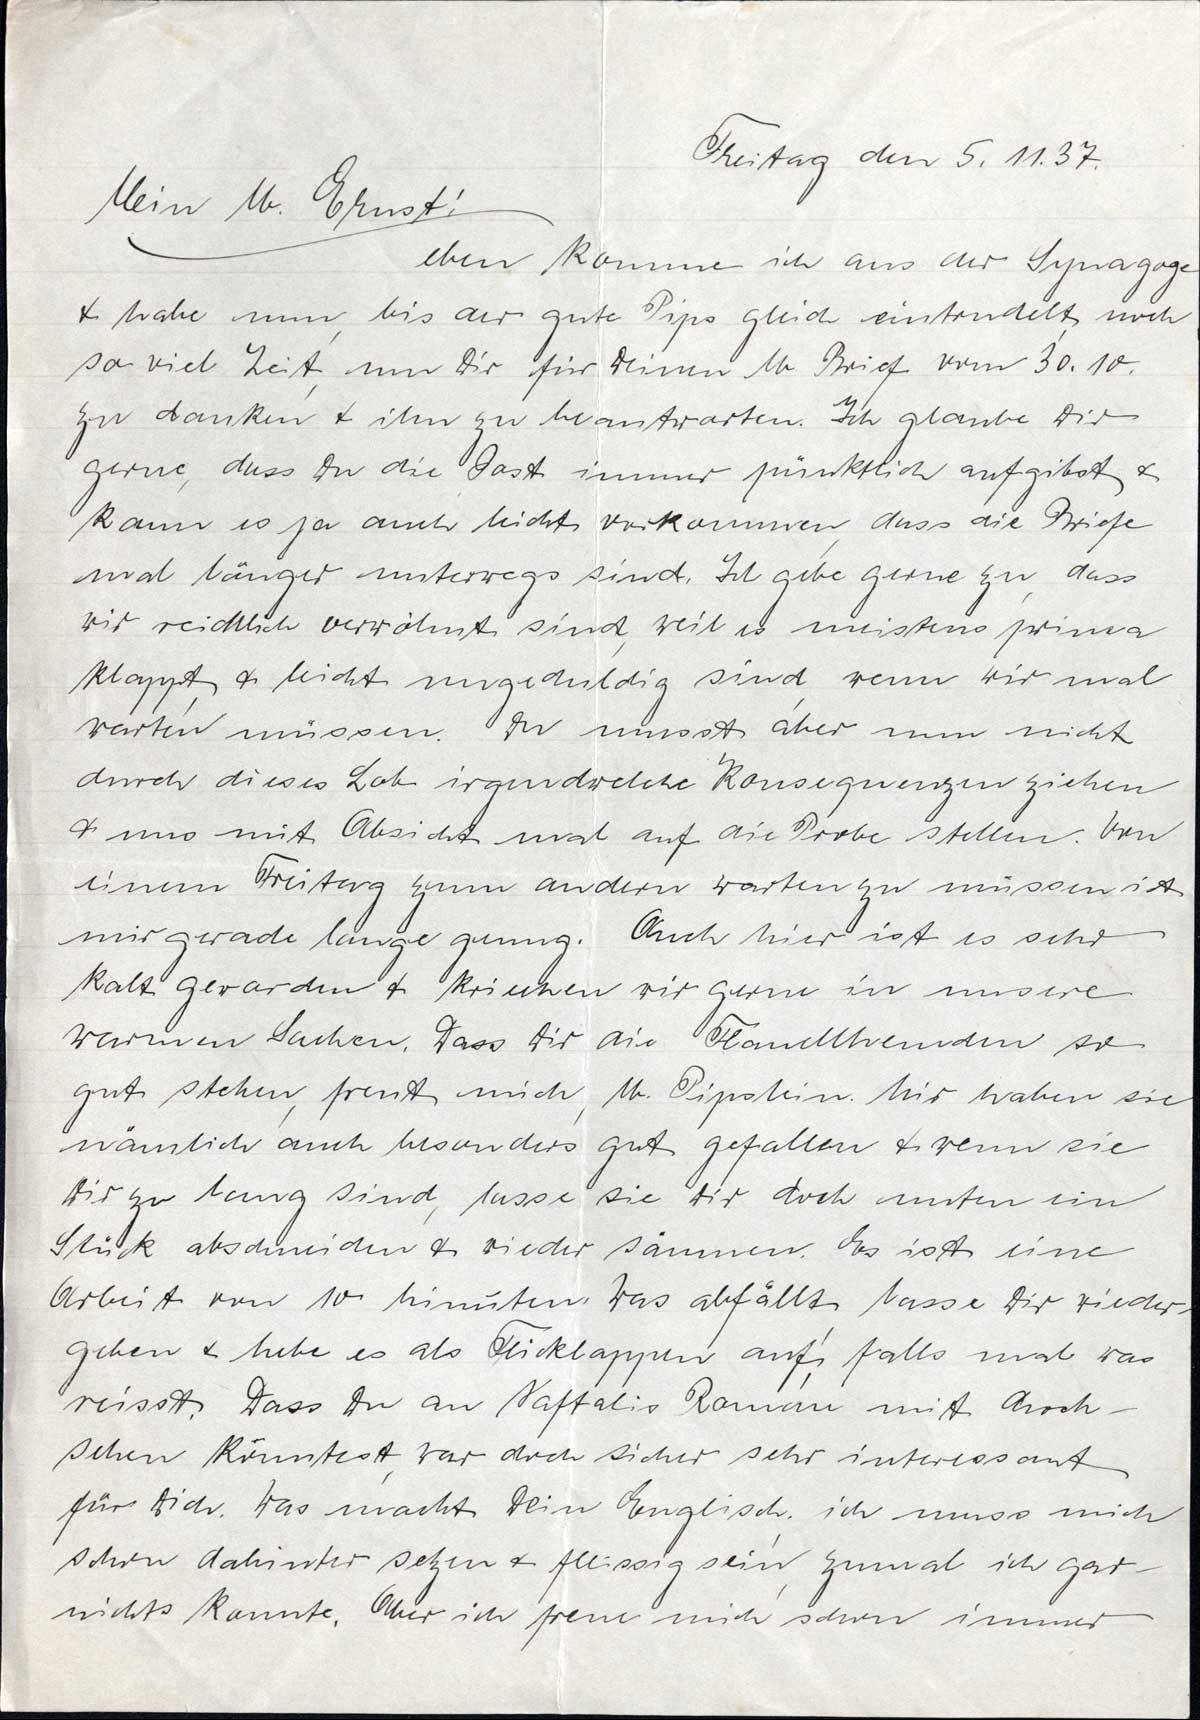 Freitag den 5. 11. 37.
Mein lb. Ernst!
eben komme ich aus der Synagoge
& habe nun, bis der gute Pips gleich eintrudelt, noch
so viel Zeit, um Dir für Deinen lb Brief vom 30. 10.
zu danken & ihn zu beantworten. Ich glaube Dir
gerne, dass Du die Post immer pünktlich aufgibst &
kann es ja auch leicht vorkommen, dass die Briefe
mal länger unterwegs sind. Ich gebe gerne zu, dass
wir reichlich verwöhnt sind, weil es meistens prima
klappt, & leicht ungeduldig sind, wenn wir mal
warten müssen. Du musst aber nun nicht
durch dieses Lob irgendwelche Konsequenzen ziehen
& uns mit Absicht mal auf die Probe stellen. Von
einem Freitag zum andern warten zu müssen ist
mir gerade lange genug. Auch hier ist es sehr
kalt geworden & kriechen wir gerne in unsere
warmen Sachen. Dass Dir die Flanellhemden so
gut stehen, freut mich, lb. Pipslein. Mir haben sie
nämlich auch besonders gut gefallen & wenn sie
Dir zu lang sind, lasse sie Dir doch unten ein
Stück abschneiden & wieder säumen. Es ist eine
Arbeit von 10 Minuten. Was abfällt, lasse Dir wieder-
geben & hebe es als Flicklappen auf, falls mal was
reisst. Dass Du an Naftalis Roman mit durch-
sehen konntest, war doch sicher sehr interessant
für Dich. Was macht Dein Englisch, ich muss mich
schon dahinter setzen & fleissig sein, zumal ich gar-
nichts konnte. Aber ich freue mich schon immer